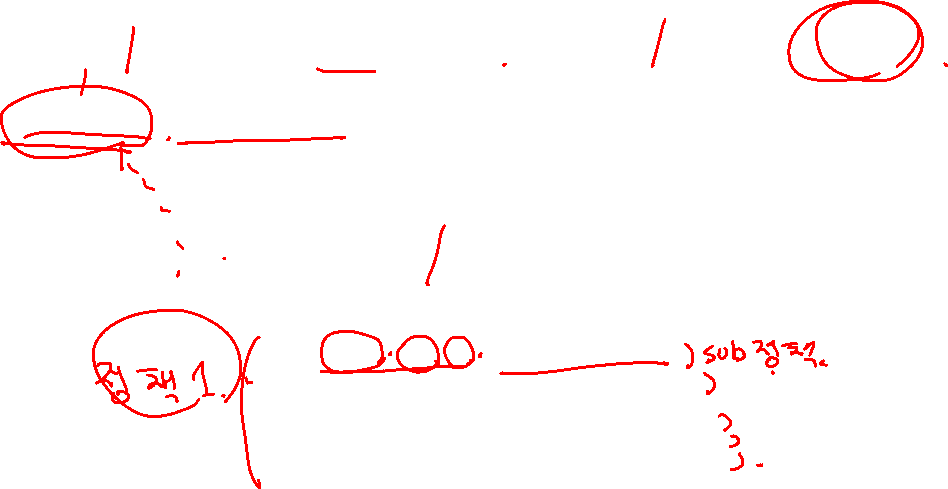 정책 1. sub 정책.